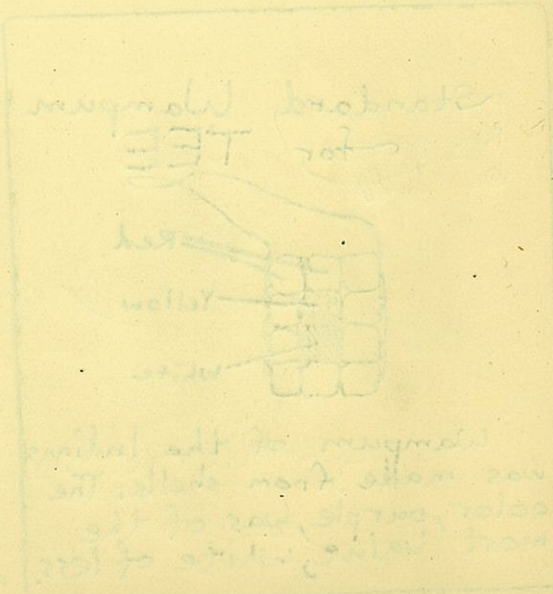 Standard Wampum
for TEE
Red
Yellow
White
Wampum of the Indians
was made from shells. The
color, purple, was of the
most value, white of less.